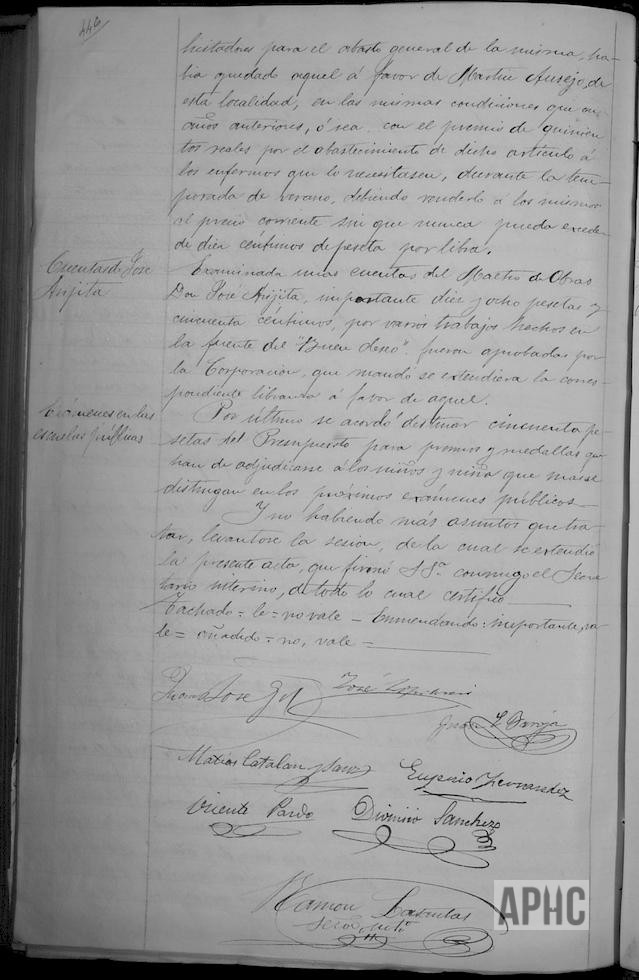 446
licitadores para el abasto general de la misma, ha-
bia quedado aquel á favor de Martin Ausejo, de
esta localidad, en las mismas condiciones que en
años anteriores, ó sea con el premio de quinien
tos reales por el abastecimiento de dicho artículo á
los enfermos que lo necesitasen, durante la tem-
porada de verano, debiendo venderlo á los mismos
al precio corriente sin que nunca pueda exceder
de diez céntimos de peseta por libra.
Cuentas de José
Arijita
Examinada unas cuentas del Maestro de Obras
Don José Arijita, importante diez y ocho pesetas y
cincuenta céntimos, por varios trabajos hechos en
la fuente del "Buen deseo" fueron aprobadas por
la Corporacion, que mandó se extendiera la corres-
pondiente libranza á favor de aquel.
Exámenes en las
escuelas públicas
Por último se acordó destinar cincuenta pe-
setas del Presupuesto para premios y medallas que
han de adjudicarse á los niños y niñas que mas se
distingan en los próximos exámenes públicos.
Y no habiendo más asuntos que tra-
tar, levantose la sesion, de la cual se extendió
la presente acta, que firmó S Sª. conmigo el Secre
tario interino, de todo lo cual certifico
Tachado = le = no vale = Enmendando: importante, va-
le = añadido = no, vale =
José Gil
José
Juan
Matias Catalan y Sanz
Eugenio Hernandez
Vicente Pardo
Dionisio Sanchez
Ramon
Secrº intº
APHC